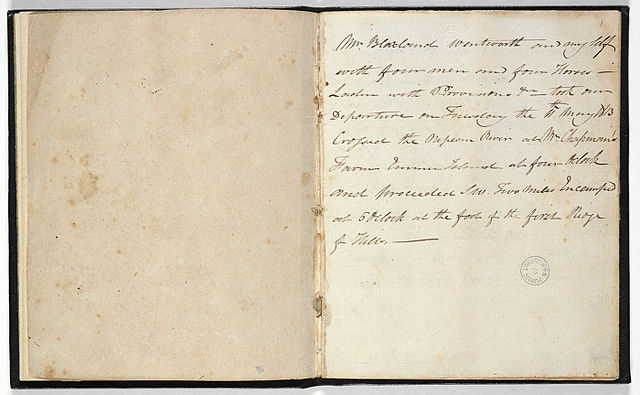 1
Mr Blaxland Wentworth and myself
with four men and four Horses –
Laden with Provisions &c – took our
Departure on Tuesday the 11th May 1813
Crossed the Nepean River at Mr Chapman's
Farm Emmu Island at four oClock
and proceeded S.W. Two miles Encamped
at 5 oClock at the foot of the first Ridge
of Hills —